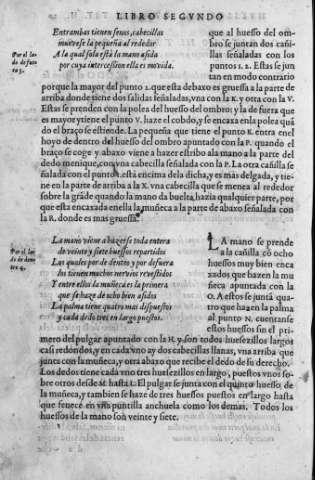 LIBRO SEGVNDO
Entrambas tienen senos, cabecillas
mueuese la pequeña al rededor
A la qual sola está la mano asida
por cuya intercession ella es mouida.
Por el lado de fuera 3.
que al huesso del ombro se juntan dos cañillas señaladas con los
puntos 1. 2. Estas se juntan en modo contrario
porque la mayor del punto 2. que esta debaxo es gruessa a la parte de
arriba donde tiene dos salidas señaladas, vna con la K. y otra con la V.
Estas se prenden con la polea del huesso del ombro; y la de fuera que
es mayor y tiene el punto V. haze el cobdo, y se encaxa en la polea quã
do el braço se estiende. La pequeña que tiene el punto K. entra en el
hoyo de dentro del huesso del ombro apuntado con la P. quando el
braço se coge y abaxo viene a hazer estribo a la mano a la parte del
dedo menique, con vna cabecilla señalada con la P. La otra cañilla se
ñalada con el punto está encima dela dicha, y es más delgada, y tie-
ne en la parte de arriba a la X. vna cabecilla que se menea al rededor
sobre la grãde quando la mano da buelta hazia qualquier parte, por
que esta encaxada en ella la muñeca a la parte de abaxo señalada con
la R. donde es mas gruessa.
Por el lado de dentro 4.
La mano viene a hazerse toda entera
de veinte y siete huessos repartidos
Los quales por de dentro y por defuera
los tienen muchos neruios reuestidos
Y entre ellos la muñeca es la primera
que se haze de ocho bien asidos
La palma tiene quatro mas dispuestos
y cada dedo tres en largo puestos.
LA mano se prende
a la cañilla cõ ocho
huessos muy bien enca
xados que hazen la mu
ñeca apuntada con la
O. A estos se juntã qua
tro que hazen la palma
al punto N. cuentanse
estos huessos sin el pri-
mero del pulgar apuntado con la H. y son todos huessezillos largos
casi redondos, y en cada vno ay dos cabecillas llanas, vna arriba que
junta con la muñeca, y otra abaxo que recibe el dedo de su derecho.
Los dedos tiene cada vno tres huessezillos en largo, puestos vnos so-
bre otros desde hasta I. El pulgar se junta con el quinto huesso de
la muñeca, y tambien se haze de tres huessos puestos en largo hasta
que fenece en vna puntilla anchuela como los demas. Todos los
huessos de la mano son veinte y siete.